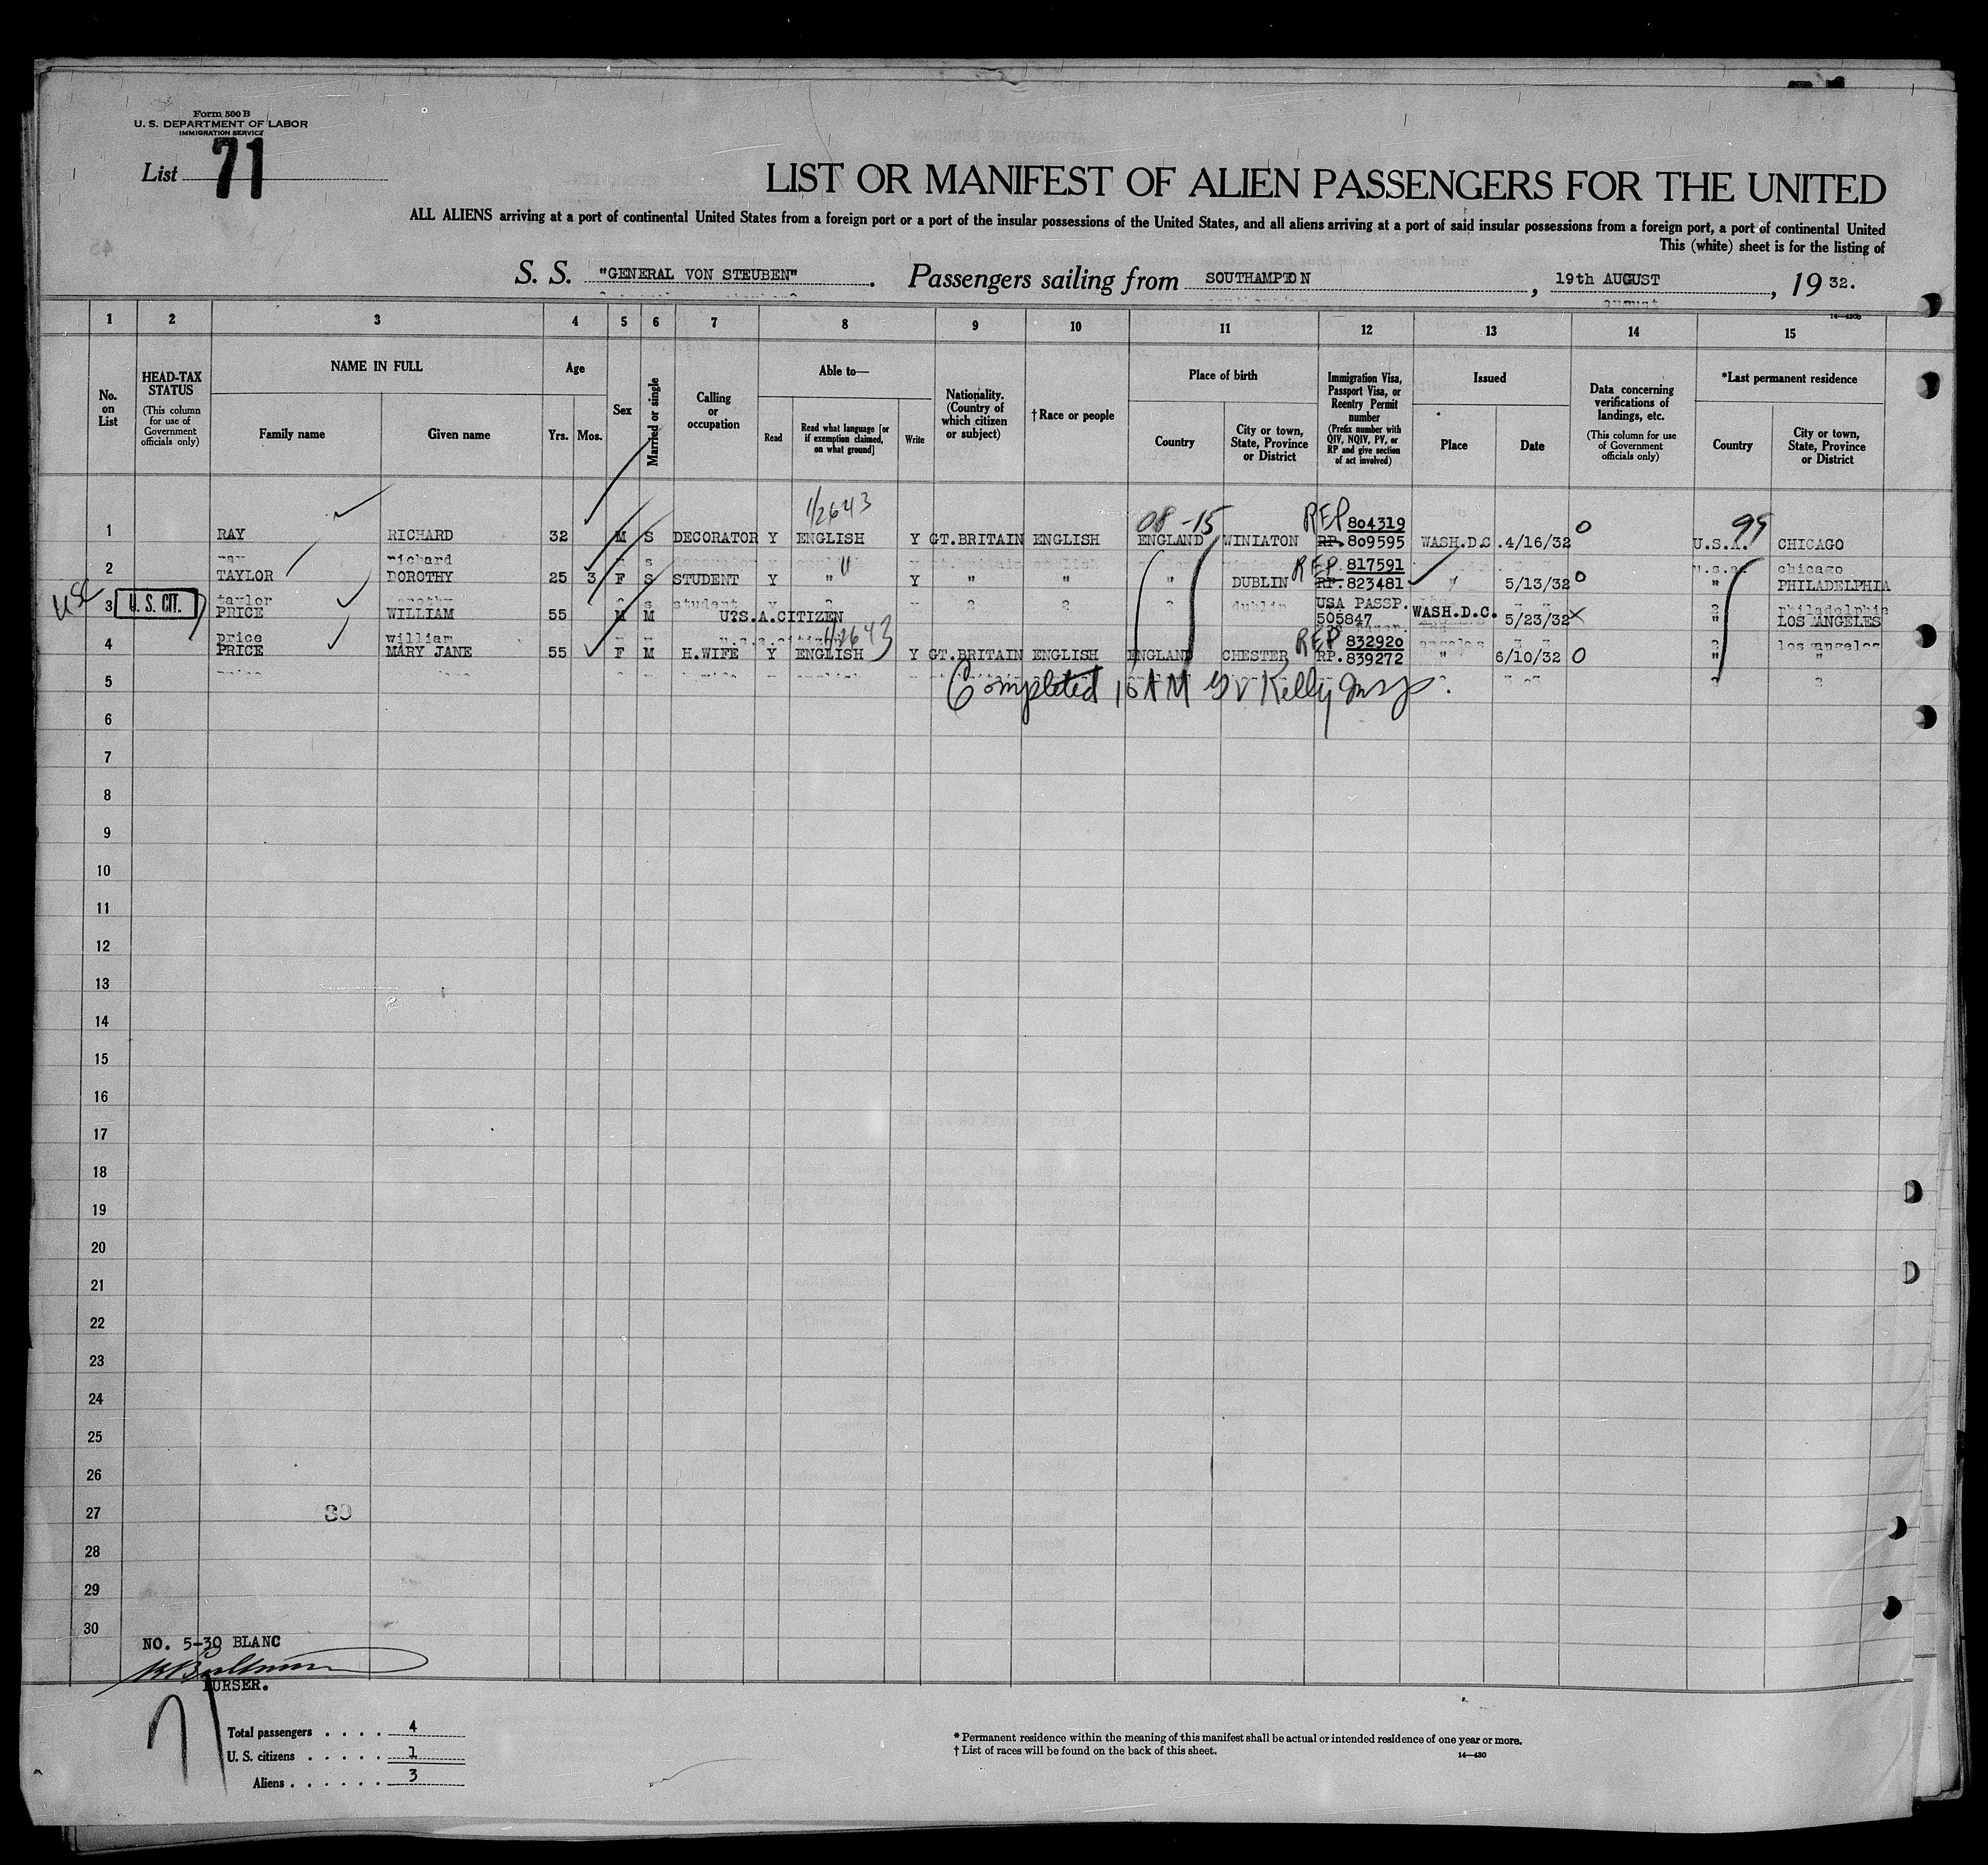 Form 500 B
U. S. DEPARTMENT OF LABOR
IMMIGRATION SERVICE
List 71
LIST OR MANIFEST OF ALIEN PASSENGERS FOR THE UNITED
ALL ALIENS arriving at a port of continental United States from a foreign port or a port of the insular possessions of the United States, and all aliens arriving at a port of said insular possessions from a foreign port, a port of continental United
This (white) sheet is for the listing of
S. S. "GENERAL VON STEUBEN". Passengers sailing from SOUTHAMPTON, 19th AUGUST, 1932.
14—430b
1 2 3 4 5 6 7 8 9 10 11 12 13 14 15
No. on List
HEAD-TAX STATUS
(This column for use of Government officials only)
NAME IN FULL
Family name Given name
Age
Yrs. Mos.
Sex
Married or single
Calling or occupation
Able to—
Read
Read what language [or if exemption claimed, on what ground]
Write
Nationality. (Country of which citizen or subject)
† Race or people
Place of birth
Country
City or town, State, Province or District
Immigration Visa, Passport Visa, or Reentry Permit number
(Prefix number with QIV, NQIV, PV, or RP and give section of act involved)
Issued
Place Date
Data concerning verifications of landings, etc.
(This column for use of Government officials only)
*Last permanent residence
Country
City or town, State, Province or District
1/2643 08-15 REP 804319 99
1 RAY RICHARD 32 M S DECORATOR Y ENGLISH Y GT.BRITAIN ENGLISH ENGLAND WINIATON RP. 809595 WASH.D.C. 4/16/32 0 U.S.A. CHICAGO
REP. 817591
2 TAYLOR DOROTHY 25 3 F S STUDENT Y " Y " " " DUBLIN RP. 823481 " 5/13/32 0 " PHILADELPHIA
USC U. S. CIT.
USA PASSP.
3 PRICE WILLIAM 55 M M U.S.A.CITIZEN 505847 WASH.D.C. 5/23/32 X " LOS ANGELES
1/2643 REP 832920
4 PRICE MARY JANE 55 F M H.WIFE Y ENGLISH Y GT.BRITAIN ENGLISH ENGLAND CHESTER RP. 839272 " 6/10/32 0 " "
5 Completed 10 AM Kelly Insp.
6
7
8
9
10
11
12
13
14
15
16
17
18
19
20
21
22
23
24
25
26
27
28
29
30
NO. 5-30 BLANC
PURSER.
71
Total passengers . . . . 4
U. S. citizens . . . . . 1
Aliens . . . . . . 3
* Permanent residence within the meaning of this manifest shall be actual or intended residence of one year or more.
† List of races will be found on the back of this sheet.
14—430